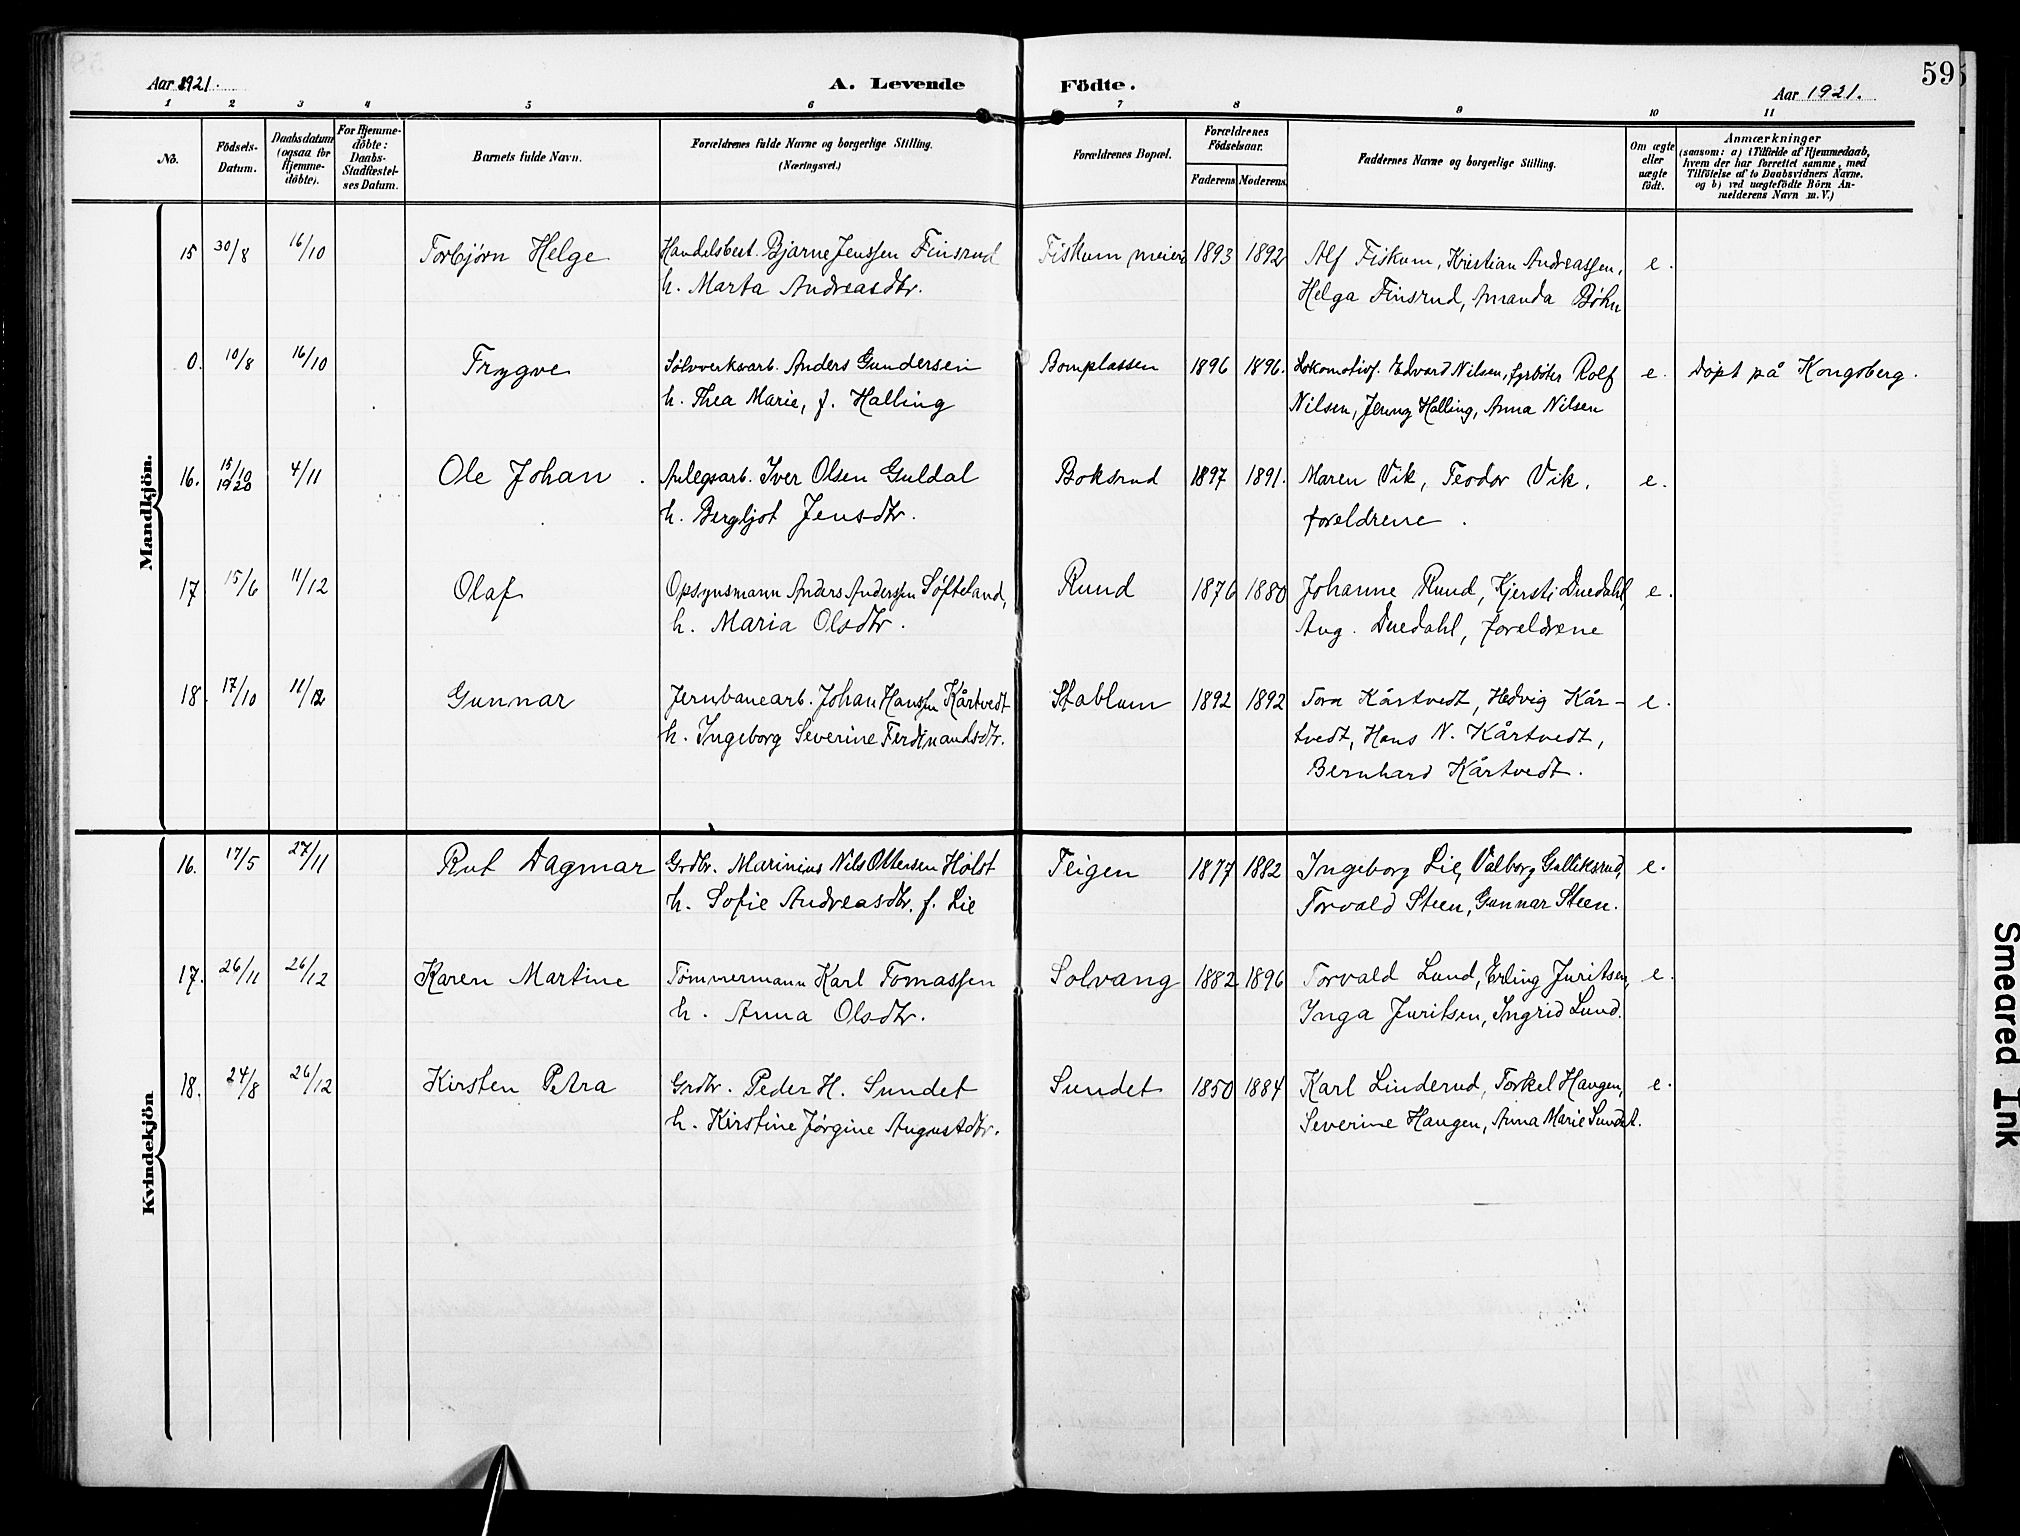 59
Aar 1921.
A. Levende Födte.
Aar 1921.
1 2 3 4 5 6 7 8 9 10 11
No.
Födsels-
Datum.
Daabsdatum
(ogsaa for
Hjemme-
döbte).
For Hjemme-
döbte:
Daabs-
Stadfæstel-
ses Datum.
Barnets fulde Navn.
Forældrenes fulde Navne og borgerlige Stilling.
(Næringsvei.)
Forældrenes Bopæl.
Forældrenes
Födselsaar.
Faderens.
Moderens.
Faddernes Navne og borgerlige Stilling.
Om ægte
eller
uægte
födt.
Anmærkninger
(saasom: a) i Tilfælde af Hjemmedaab,
hvem der har forrettet samme, med
Tilföielse af to Daabsvidners Navne.
og b) ved uægtefödte Börn An-
melderens Navn m. V.)
Mandkjön.
15 30/8 16/10 Torbjørn Helge Handelsbest. Bjarne Jenssen Finsrud Fiskum meieri 1893 1892 Alf Fiskum, Kristian Andreassen, e.
h. Marta Andreasdtr. Helga Finsrud, Amanda Bøhn
0. 10/8 16/10 Trygve Sølvverksarb. Anders Gundersen Bomplassen 1896 1896. Lokomotivf. Edvard Nilsen, fyrbøter Rolf e. Døpt på Kongsberg.
h. Thea Marie, f. Halling Nilsen, Jenny Halling, Anna Nilsen
16. 15/10 1920 4/11 Ole Johan Anlegsarb. Iver Olsen Guldal Boksrud 1897 1891. Maren Vik, Teodor Vik, e.
h. Bergljot Jensdtr. foreldrene.
17 15/6 11/12 Olaf Opsynsmann Anders Andersen Søfteland, Rund 1876 1880 Johanne Rund, Kjersti Duedahl, e.
h. Maria Olsdtr. Aug. Duedahl, foreldrene
18. 17/10 11/12 Gunnar Jernbanearb. Johan Hansen Kårtvedt Stablum 1892 1892 Tora Kårtvedt, Hedvig Kår- e.
h. Ingeborg Severine Ferdinandsdtr. tvedt, Hans N. Kårtvedt,
Bernhard Kårtvedt.
Kvindekjön
16. 17/5 27/11 Rut Dagmar Grdbr. Marinius Nils Ottersen Holst Teigen 1877 1882 Ingeborg Lie, Valborg Gulliksrud, e.
h. Sofie Andreasdtr. f. Lie Torvald Steen, Gunnar Steen.
17. 26/11 26/12 Karen Martine Tømmermann Karl Tomassen Solvang 1882 1896 Torvald Lund, Erling Juritsen, e.
h. Anna Olsdtr. Inga Juritsen, Ingrid Lund.
18. 24/8 26/12 Kirsten Petra Grdbr. Peder H. Sundet Sundet 1850 1884 Karl Linderud, Torkel Haugen, e.
h. Kirstine Jørgine Augustdtr. Severine Haugen, Anna Marie Sundet.
Smeared Ink